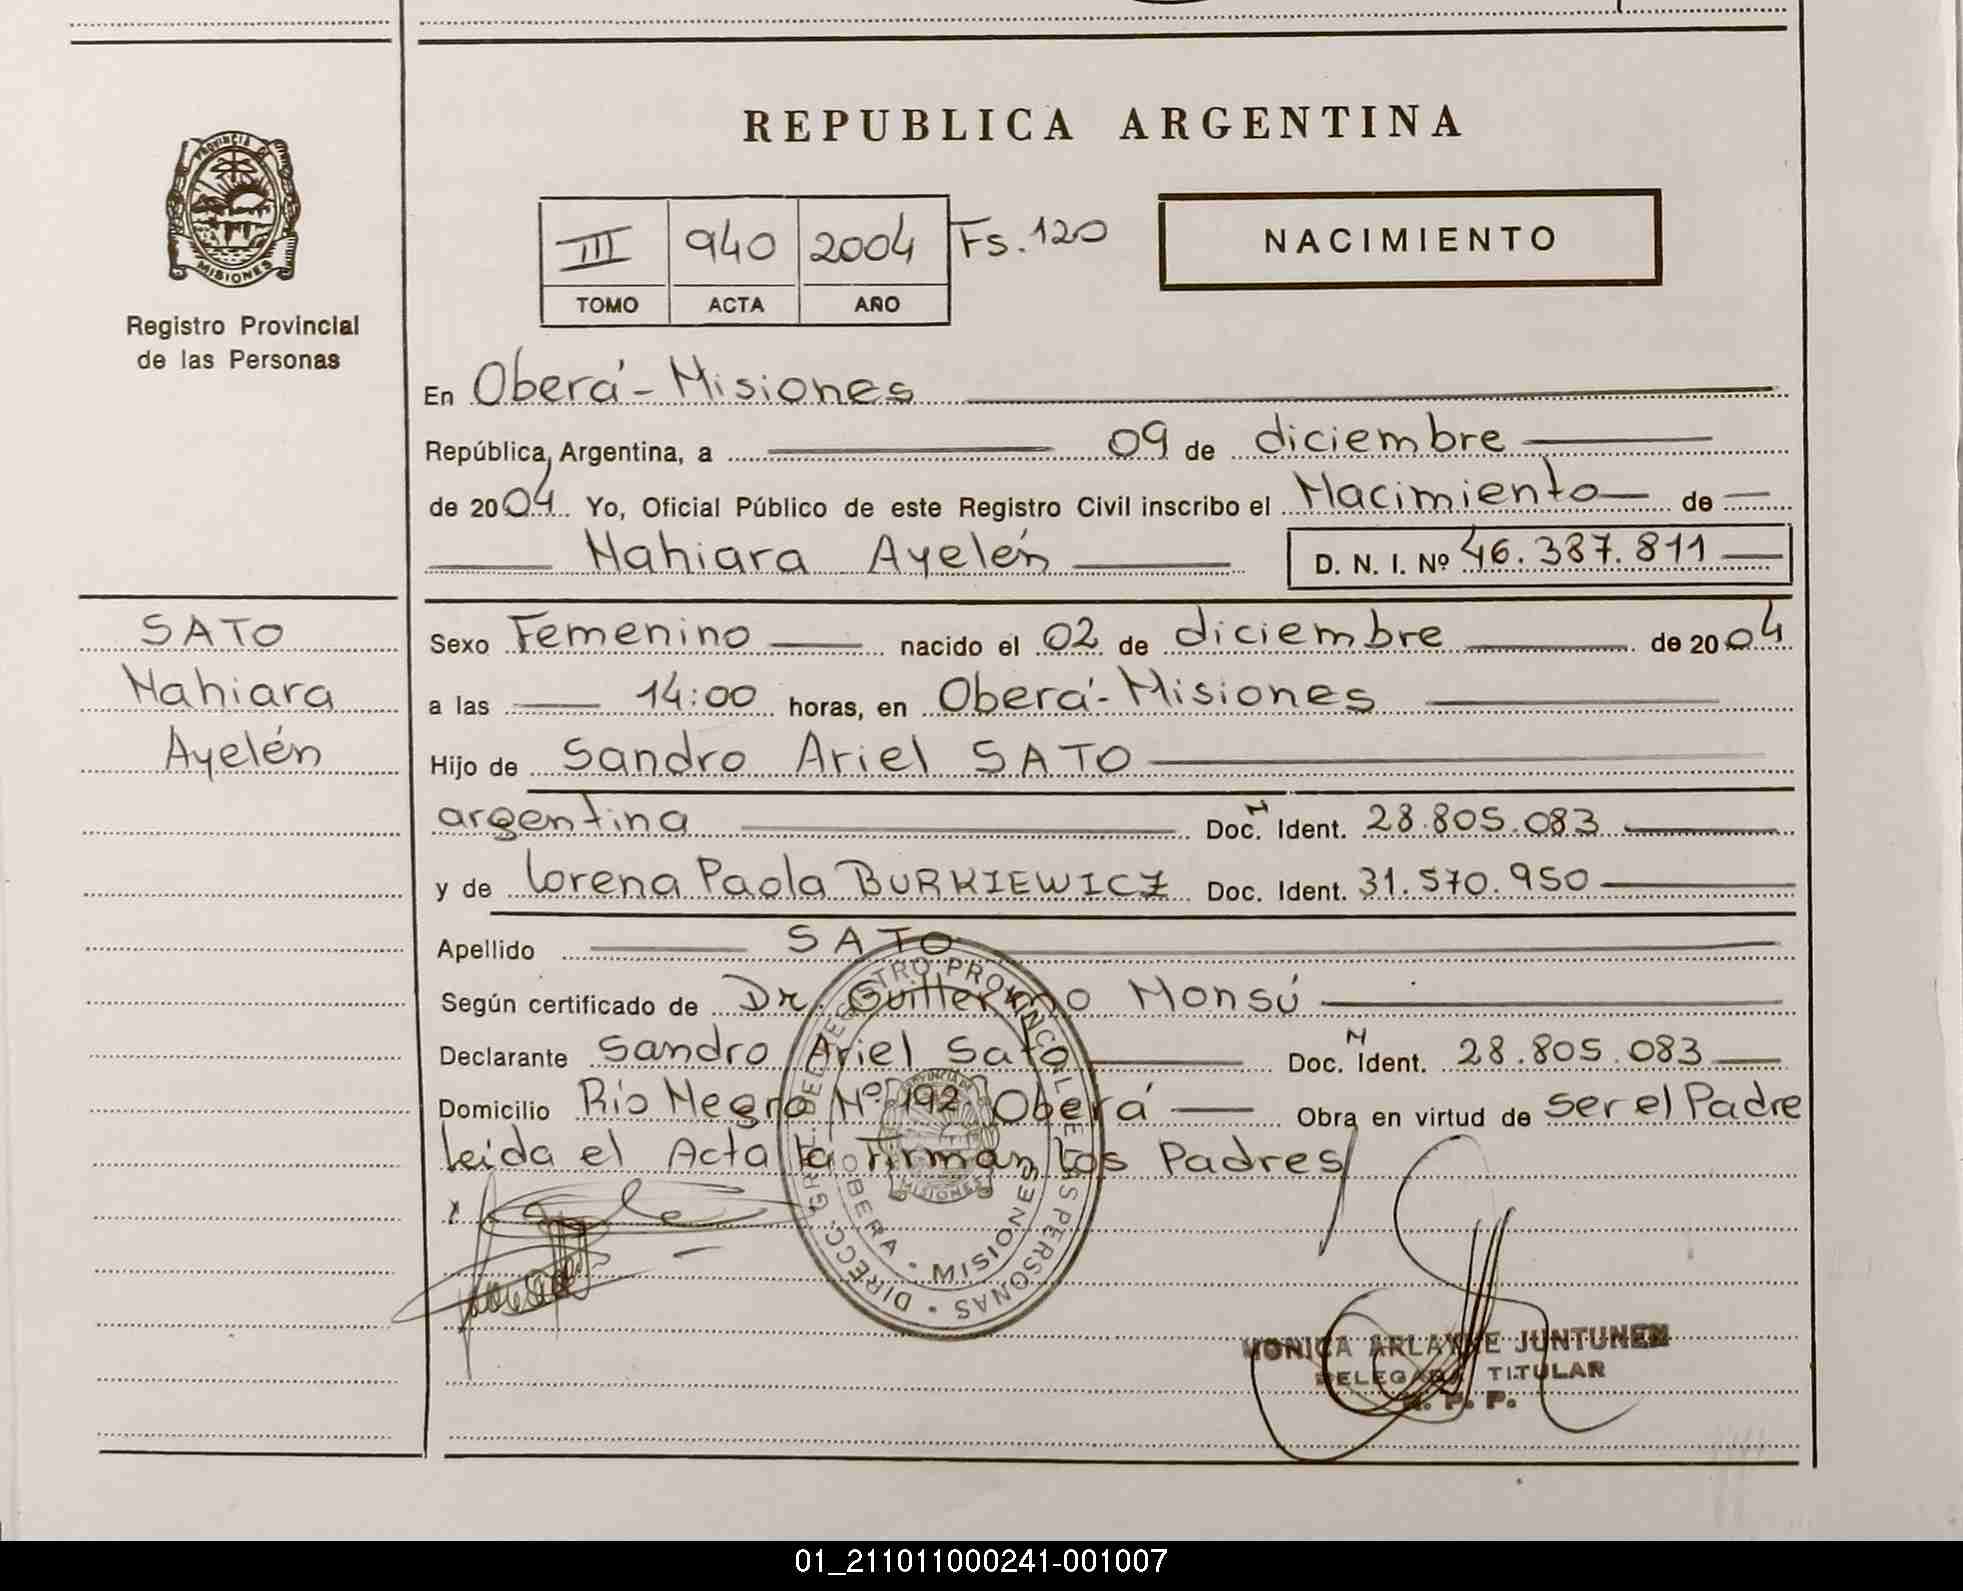 REPUBLICA ARGENTINA
PROVINCIA DE
MISIONES
Registro Provincial
de las Personas
III 940 2004 Fs. 120
TOMO ACTA AÑO
NACIMIENTO
En Oberá - Misiones
República Argentina, a 09 de diciembre
de 2004 Yo, Oficial Público de este Registro Civil inscribo el Nacimiento de
Nahiara Ayelén D. N. I. Nº 46.387.811
SATO
Nahiara
Ayelén
Sexo Femenino nacido el 02 de diciembre de 2004
a las 14:00 horas, en Oberá - Misiones
Hijo de Sandro Ariel SATO
argentina Doc. N Ident. 28.805.083
y de Lorena Paola BURKIEWICZ Doc. Ident. 31.570.950
Apellido SATO
Según certificado de Dr. Guillermo Monsú
Declarante Sandro Ariel Sato Doc. N Ident. 28.805.083
Domicilio Río Negro Nº 192. Oberá Obra en virtud de ser el Padre
leida el Acta la Firman los Padres
DIRECC. GRAL. DEL REGISTRO PROVINCIAL DE LAS PERSONAS
OBERA - MISIONES
PROVINCIA DE
MISIONES
MONICA ARLAYNE JUNTUNEN
DELEGADA TITULAR
R. P. P.
01_211011000241-001007